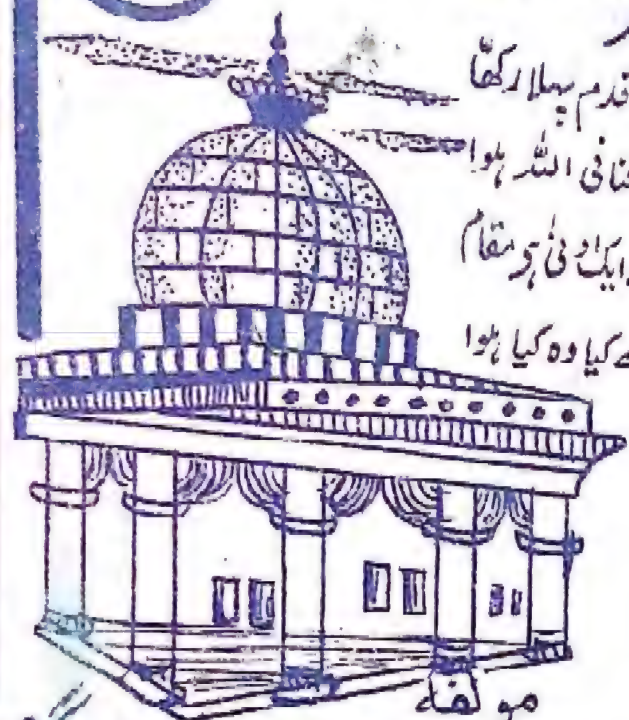 قدم پہلا رکھّا
فنا فی اللہ ہوا
ایک ادنیٰ ہو مقام
کیا وہ کیا ہوا
مولفہ